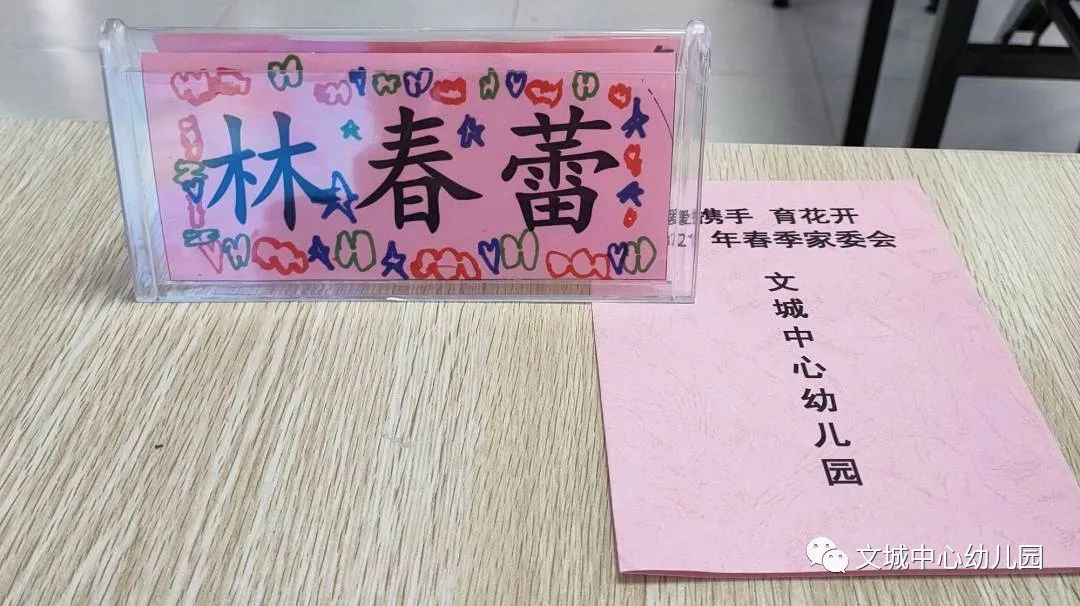 林春蕾
携手 育花开
年春季家委会
文城中心幼儿园
文城中心幼儿园